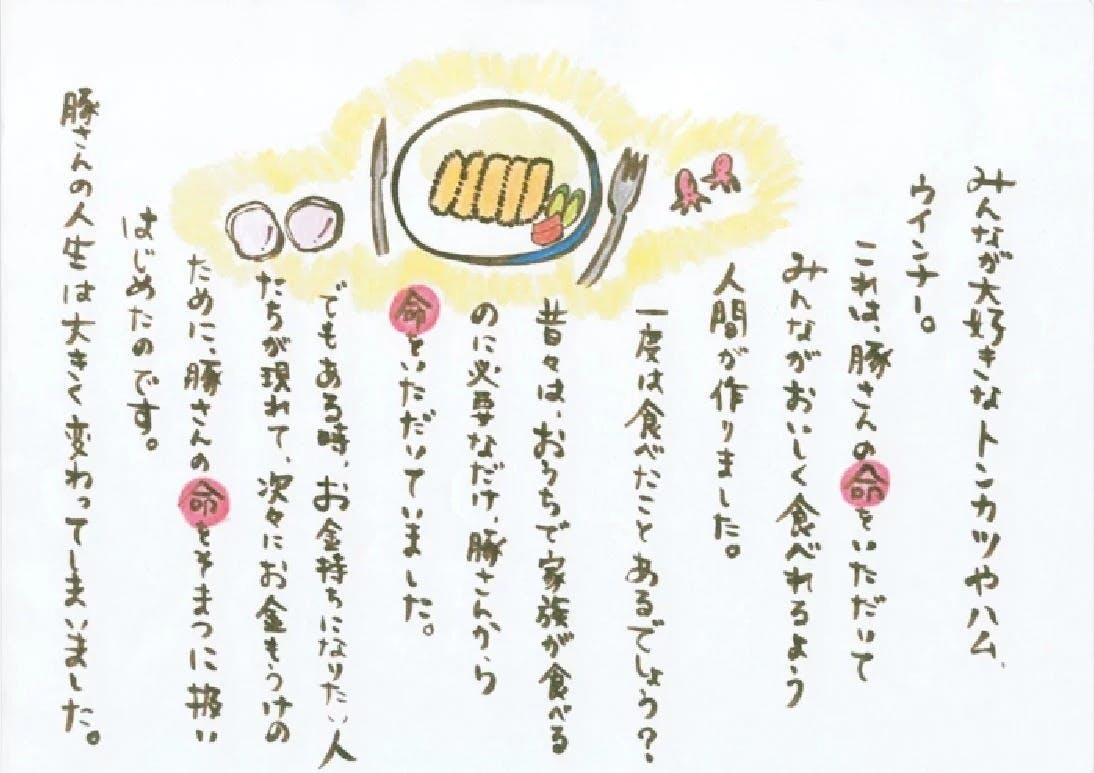 みんなが大好きなトンカツやハム、
ウインナー。
これは、豚さんの命をいただいて
みんながおいしく食べれるよう
人間が作りました。
一度は食べたことあるでしょう?
昔々は、おうちで家族が食べる
のに必要なだけ、豚さんから
命をいただいていました。
でもある時、お金持ちになりたい人
たちが現れて、次々にお金もうけの
ために、豚さんの命をそまつに扱い
はじめたのです。
豚さんの人生は大きく変わってしまいました。